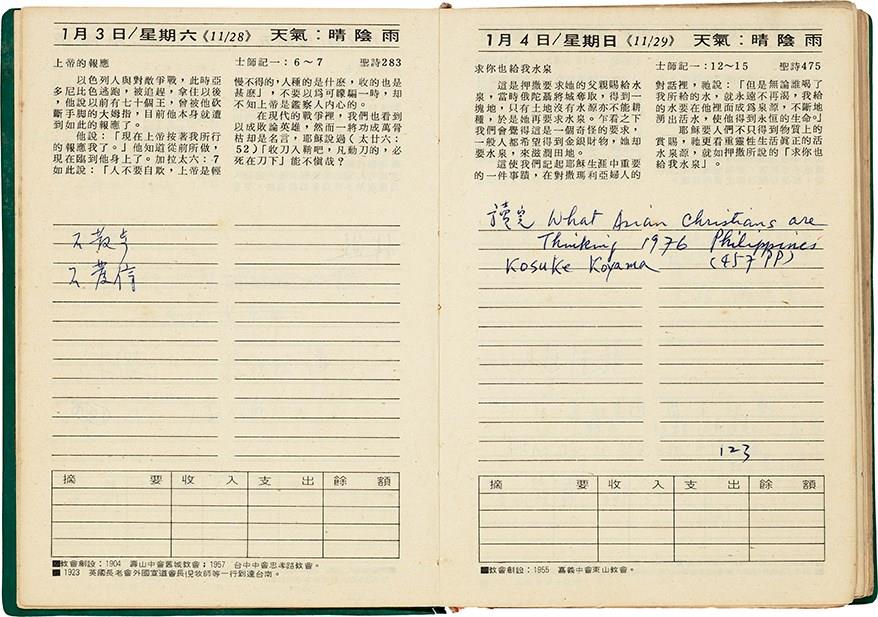 1月3日/星期六《11/28》 天氣:晴陰雨
上帝的報應
士師記一:6~7 聖詩283
以色列人與對敵爭戰,此時亞
多尼比色逃跑,被追趕,拿住以後
,他說以前有七十個王,曾被他砍
斷手脚的大姆指,目前他本身就遭
到如此的報應了。
他說:「現在上帝按著我所行
的報應我了。」他知道從前所做,
現在臨到他身上了。加拉太六:7
如此說:「人不要自欺,上帝是輕
慢不得的,人種的是什麽,收的也是
甚麽」,不要以爲可矇騙一時,却
不知上帝是鑑察人內心的。
在現代的戰爭裡,我們也看到
以成敗論英雄,然而一將功成萬骨
枯却是名言,耶穌說過(太廿六:
52)「收刀入鞘吧,凡動刀的,必
死在刀下」能不愼哉?
不散步
不發信
摘 要 收 入 支 出 餘 額
■教會創設:1904 壽山中會舊城教會;1957 台中中會忠孝路教會。
■1923 英國長老會外國宣道會長
牧師等一行到達台南。
1月4日/星期日《11/29》 天氣:晴陰雨
求你也給我水泉
士師記一:12~15 聖詩475
這是押撒要求她的父親賜給水
泉,當時俄陀聶將城奪取,得到一
塊地,只有土地沒有水源亦不能耕
種,於是她再要求水泉。乍看之下
我們會覺得這是一個奇怪的要求,
一般人都希望得到金銀財物,她却
要水泉,來滋潤田地。
這使我們記起耶穌生涯中重要
的一件事蹟,在對撒瑪利亞婦人的
對話裡,祂說:「但是無論誰喝了
我所給的水,就永遠不再渴,我給
的水要在他裡面成爲泉源,不斷地
湧出活水,使他得到永恒的生命。」
耶穌要人們不只得到物質上的
賞賜,祂更看重靈性生活的真正的活
水泉源,就如押撒所說的「求你也
給我水泉」。
讀完 What Asian Christians are
Thinking 1976 Philippines
Kosuke Koyama (457 PP)
123
摘 要 收 入 支 出 餘 額
■教會創設:1955 嘉義中會東山教會。